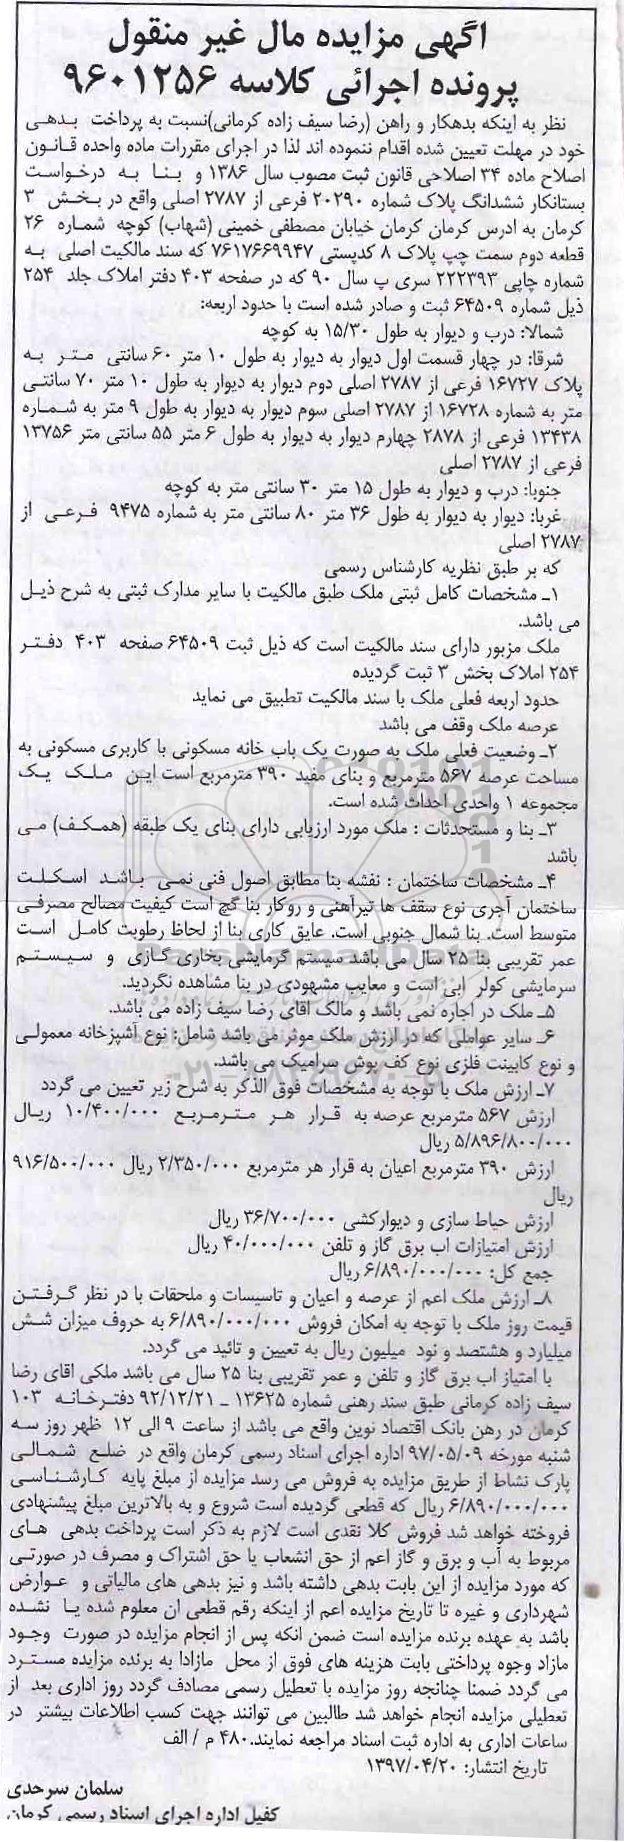 آگهی مزایده مال غیر منقول
پرونده اجرائی کلاسه ۹۶۰۱۲۵۶
نظر به اینکه بدهکار و راهن (رضا سیف زاده کرمانی)نسبت به پرداخت بدهی
خود در مهلت تعیین شده اقدام ننموده اند لذا در اجرای مقررات ماده واحده قانون
اصلاح ماده ۳۴ اصلاحی قانون ثبت مصوب سال ۱۳۸۶ و بنا به درخواست
بستانکار ششدانگ پلاک شماره ۲۰۲۹۰ فرعی از ۲۷۸۷ اصلی واقع در بخش ۳
کرمان به ادرس کرمان کرمان خیابان مصطفی خمینی (شهاب) کوچه شماره ۲۶
قطعه دوم سمت چپ پلاک ۸ کدپستی ۷۶۱۷۶۶۹۹۴۷ که سند مالکیت اصلی به
شماره چاپی ۲۲۲۳۹۳ سری پ سال ۹۰ که در صفحه ۴۰۳ دفتر املاک جلد ۲۵۴
ذیل شماره ۶۴۵۰۹ ثبت و صادر شده است با حدود اربعه:
شمالا: درب و دیوار به طول ۱۵/۳۰ به کوچه
شرقا: در چهار قسمت اول دیوار به دیوار به طول ۱۰ متر ۶۰ سانتی متر به
پلاک ۱۶۷۲۷ فرعی از ۲۷۸۷ اصلی دوم دیوار به دیوار به طول ۱۰ متر ۷۰ سانتی
متر به شماره ۱۶۷۲۸ از ۲۷۸۷ اصلی سوم دیوار به دیوار به طول ۹ متر به شماره
۱۳۴۳۸ فرعی از ۲۸۷۸ چهارم دیوار به دیوار به طول ۶ متر ۵۵ سانتی متر ۱۳۷۵۶
فرعی از ۲۷۸۷ اصلی
جنوبا: درب و دیوار به طول ۱۵ متر ۳۰ سانتی متر به کوچه
غربا: دیوار به دیوار به طول ۳۶ متر ۸۰ سانتی متر به شماره ۹۴۷۵ فرعی از
۲۷۸۷ اصلی
که بر طبق نظریه کارشناس رسمی
۱ـ مشخصات کامل ثبتی ملک طبق مالکیت با سایر مدارک ثبتی به شرح ذیل
می باشد.
ملک مزبور دارای سند مالکیت است که ذیل ثبت ۶۴۵۰۹ صفحه ۴۰۳ دفتر
۲۵۴ املاک بخش ۳ ثبت گردیده
حدود اربعه فعلی ملک با سند مالکیت تطبیق می نماید
عرصه ملک وقف می باشد
۲ـ وضعیت فعلی ملک به صورت یک باب خانه مسکونی با کاربری مسکونی به
مساحت عرصه ۵۶۷ مترمربع و بنای مفید ۳۹۰ مترمربع است این ملک یک
مجموعه ۱ واحدی احداث شده است.
۳ـ بنا و مستحدثات : ملک مورد ارزیابی دارای بنای یک طبقه (همکف) می
باشد
۴ـ مشخصات ساختمان : نقشه بنا مطابق اصول فنی نمی باشد اسکلت
ساختمان آجری نوع سقف ها تیرآهنی و روکار بنا گچ است کیفیت مصالح مصرفی
متوسط است. بنا شمال جنوبی است. عایق کاری بنا از لحاظ رطوبت کامل است
عمر تقریبی بنا ۲۵ سال می باشد سیستم گرمایشی بخاری گازی و سیستم
سرمایشی کولر ابی است و معایب مشهودی در بنا مشاهده نگردید.
۵ـ ملک در اجاره نمی باشد و مالک آقای رضا سیف زاده می باشد.
۶ـ سایر عواملی که در ارزش ملک موثر می باشد شامل: نوع آشپزخانه معمولی
و نوع کابینت فلزی نوع کف پوش سرامیک می باشد.
۷ـ ارزش ملک با توجه به مشخصات فوق الذکر به شرح زیر تعیین می گردد
ارزش ۵۶۷ مترمربع عرصه به قرار هر مترمربع ۱۰/۴۰۰/۰۰۰ ریال
۵/۸۹۶/۸۰۰/۰۰۰ ریال
ارزش ۳۹۰ مترمربع اعیان به قرار هر مترمربع ۲/۳۵۰/۰۰۰ ریال ۹۱۶/۵۰۰/۰۰۰
ریال
ارزش حیاط سازی و دیوارکشی ۳۶/۷۰۰/۰۰۰ ریال
ارزش امتیازات اب برق گاز و تلفن ۴۰/۰۰۰/۰۰۰ ریال
جمع کل: ۶/۸۹۰/۰۰۰/۰۰۰ ریال
۸ـ ارزش ملک اعم از عرصه و اعیان و تاسیسات و ملحقات با در نظر گرفتن
قیمت روز ملک با توجه به امکان فروش ۶/۸۹۰/۰۰۰/۰۰۰ به حروف میزان شش
میلیارد و هشتصد و نود میلیون ریال به تعیین و تائید می گردد.
با امتیاز اب برق گاز و تلفن و عمر تقریبی بنا ۲۵ سال می باشد ملکی اقای رضا
سیف زاده کرمانی طبق سند رهنی شماره ۱۳۶۲۵ ـ ۹۲/۱۲/۲۱ دفترخانه ۱۰۳
کرمان در رهن بانک اقتصاد نوین واقع می باشد از ساعت ۹ الی ۱۲ ظهر روز سه
شنبه مورخه ۹۷/۰۵/۰۹ اداره اجرای اسناد رسمی کرمان واقع در ضلع شمالی
پارک نشاط از طریق مزایده به فروش می رسد مزایده از مبلغ پایه کارشناسی
۶/۸۹۰/۰۰۰/۰۰۰ ریال که قطعی گردیده است شروع و به بالاترین مبلغ پیشنهادی
فروخته خواهد شد فروش کلا نقدی است لازم به ذکر است پرداخت بدهی های
مربوط به آب و برق و گاز اعم از حق انشعاب یا حق اشتراک و مصرف در صورتی
که مورد مزایده از این بابت بدهی داشته باشد و نیز بدهی های مالیاتی و عوارض
شهرداری و غیره تا تاریخ مزایده اعم از اینکه رقم قطعی ان معلوم شده یا نشده
باشد به عهده برنده مزایده است ضمن انکه پس از انجام مزایده در صورت وجود
مازاد وجوه پرداختی بابت هزینه های فوق از محل مازادا به برنده مزایده مسترد
می گردد ضمنا چنانچه روز مزایده با تعطیل رسمی مصادف گردد روز اداری بعد از
تعطیلی مزایده انجام خواهد شد طالبین می توانند جهت کسب اطلاعات بیشتر در
ساعات اداری به اداره ثبت اسناد مراجعه نمایند.۴۸۰ م / الف
تاریخ انتشار: ۱۳۹۷/۰۴/۲۰
سلمان سرحدی
کفیل اداره اجرای اسناد رسمی کرمان